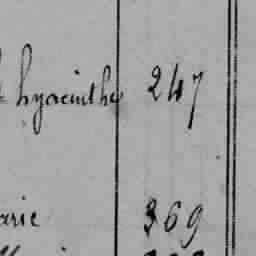 hyacinthe 247
arie 369